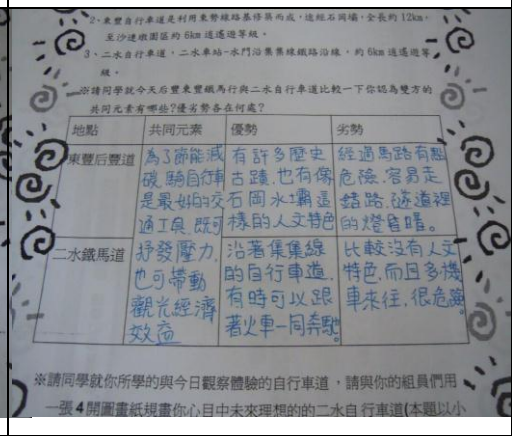 2、東豐自行車道是利用東勢線路基修築而成，途經石岡壩，全長約 12km，
至沙連墩園區約 6km 逍遙遊等級。
3、二水自行車道，二水車站-水門沿集集線鐵路沿線，約 6km 逍遙遊等
級。
※請同學就今天后豐東豐鐵馬行與二水自行車道比較一下你認為雙方的
共同元素有哪些?優劣勢各在何處?
地點 共同元素 優勢 劣勢
東豐后豐道
為了節能減
碳，騎自行車
是最好的交
通工具，既可
有許多歷史
古蹟，也有像
石岡水壩這
樣的人文特色
經過馬路有點
危險，容易走
錯路，隧道裡
的燈昏暗。
二水鐵馬道
抒發壓力，
也可帶動
觀光經濟
效益
沿著集集線
的自行車道，
有時可以跟
著火車一同奔馳。
比較沒有人文
特色，而且多機
車來往，很危險。
※請同學就你所學的與今日觀察體驗的自行車道，請與你的組員們用
一張 4 開圖畫紙規畫你心目中未來理想的的二水自行車道(本題以小